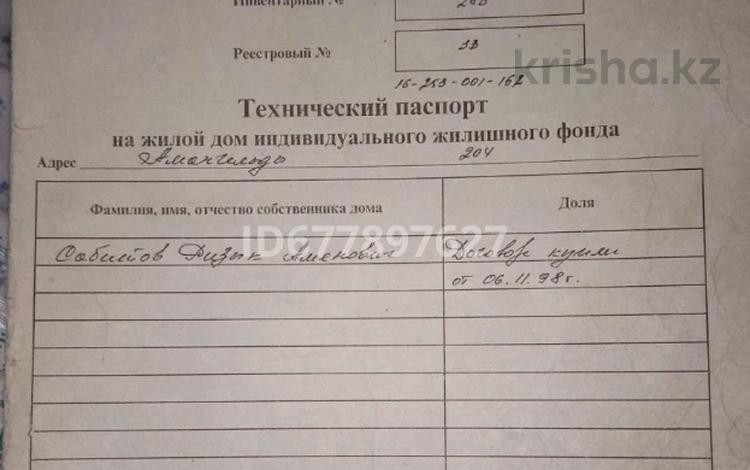 Инвентарный №
Реестровый № 33
krisha.kz
16-253-001-162
Технический паспорт
на жилой дом индивидуального жилишного фонда
Адрес Амангельды 204
Фамилия, имя, отчество собственника дома Доля
ID677897627
Сабитов Ризык Аменович Договор купли
от 06.11.98г.